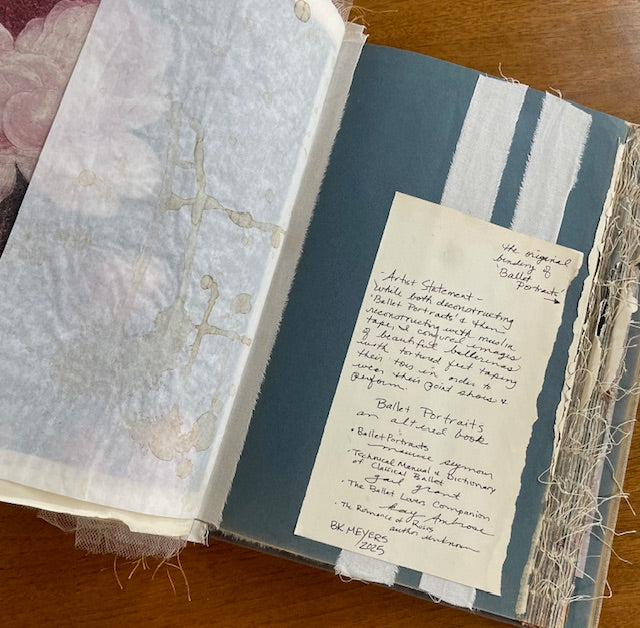 the original
binding of
'Ballet
Portraits'
- Artist Statement -
While both deconstructing
'Ballet Portraits & then
reconstructing with muslin
tape, I conjured images
of beautiful ballerinas
with tortured feet taping
their toes in order to
wear their point shoes &
perform.
Ballet Portraits
an altered book
• Ballet Portraits
maurice seymour
• Technical Manual & Dictionary
of Classical Ballet
gail grant
• The Ballet Lovers Companion
kay ambrose
• The Romance of
author unknown
BK MEYERS
2025